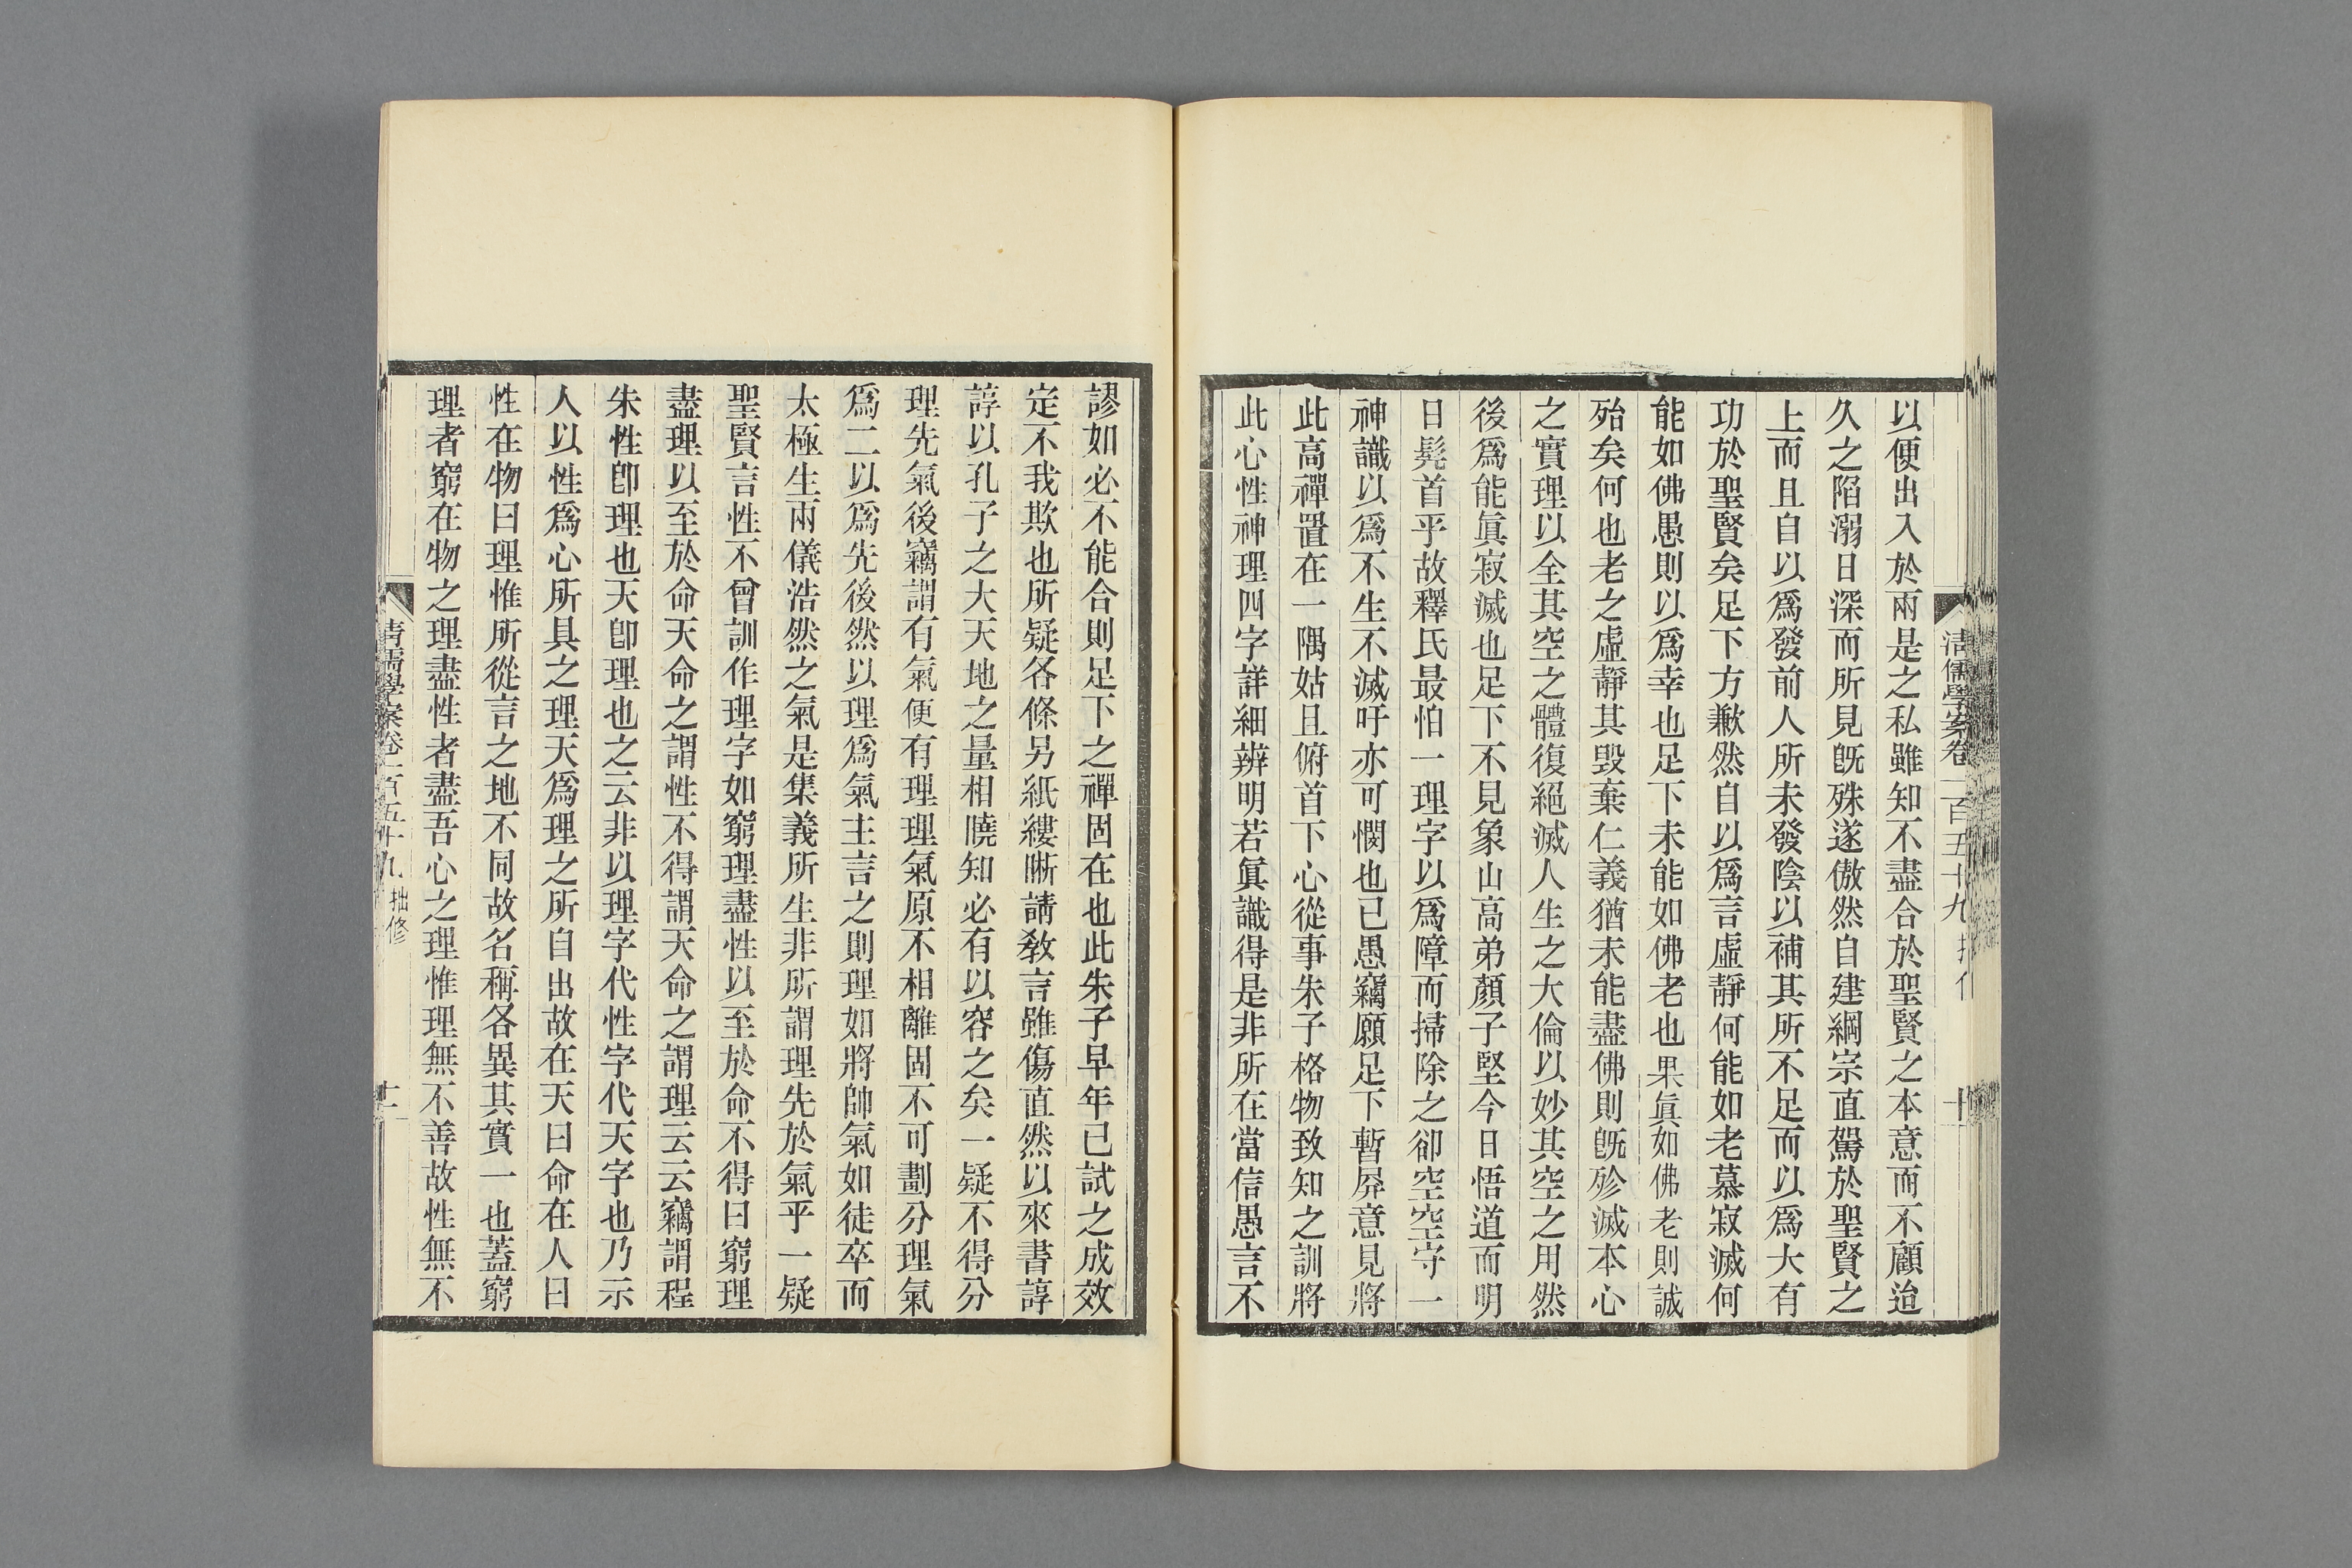 清儒學案卷一百五十九
十
以便出入於兩是之私雖知不盡合於聖賢之本意而不顧迨
久之陷溺日深而所見既殊遂傲然自建綱宗直駕於聖賢之
上而且自以爲發前人所未發陰以補其所不足而以爲大有
功於聖賢矣足下方歉然自以爲言虛靜何能如老慕寂滅何
能如佛愚則以爲幸也足下未能如佛老也果眞如佛老則誠
殆矣何也老之虛靜其毀棄仁義猶未能盡佛則既殄滅本心
之實理以全其空之體復絕滅人生之大倫以妙其空之用然
後爲能眞寂滅也足下不見象山高弟顏子堅今日悟道而明
日髡首乎故釋氏最怕一理字以爲障而掃除之卻空空守一
神識以爲不生不滅吁亦可憫也已愚竊願足下暫屛意見將
此高禪置在一隅姑且俯首下心從事朱子格物致知之訓將
此心性神理四字詳細辨明若眞識得是非所在當信愚言不
謬如必不能合則足下之禪固在也此朱子早年已試之成效
定不我欺也所疑各條另紙縷晰請敎言雖傷直然以來書諄
諄以孔子之大天地之量相曉知必有以容之矣一疑不得分
理先氣後竊謂有氣便有理理氣原不相離固不可劃分理氣
爲二以爲先後然以理爲氣主言之則理如將帥氣如徒卒而
太極生兩儀浩然之氣是集義所生非所謂理先於氣乎一疑
聖賢言性不曾訓作理字如窮理盡性以至於命不得曰窮理
盡理以至於命天命之謂性不得謂天命之謂理云云竊謂程
朱性卽理也天卽理也之云非以理字代性字代天字也乃示
人以性爲心所具之理天爲理之所自出故在天曰命在人曰
性在物曰理惟所從言之地不同故名稱各異其實一也蓋窮
理者窮在物之理盡性者盡吾心之理惟理無不善故性無不
清儒學案卷一百五十九 拙修
十一